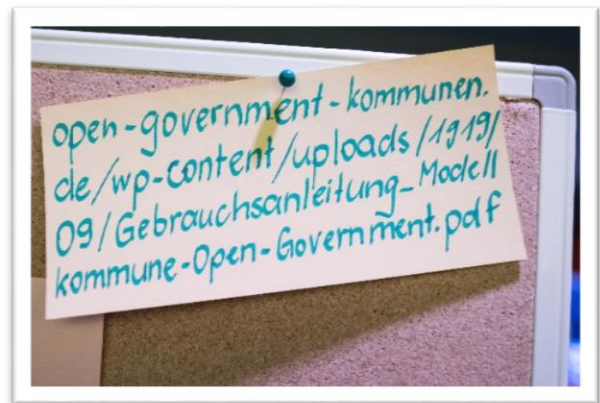 open-government-kommunen.
de/wp-content/uploads/1919/
09/Gebrauchsanleitung_Modell
kommune-Open-Government.pdf